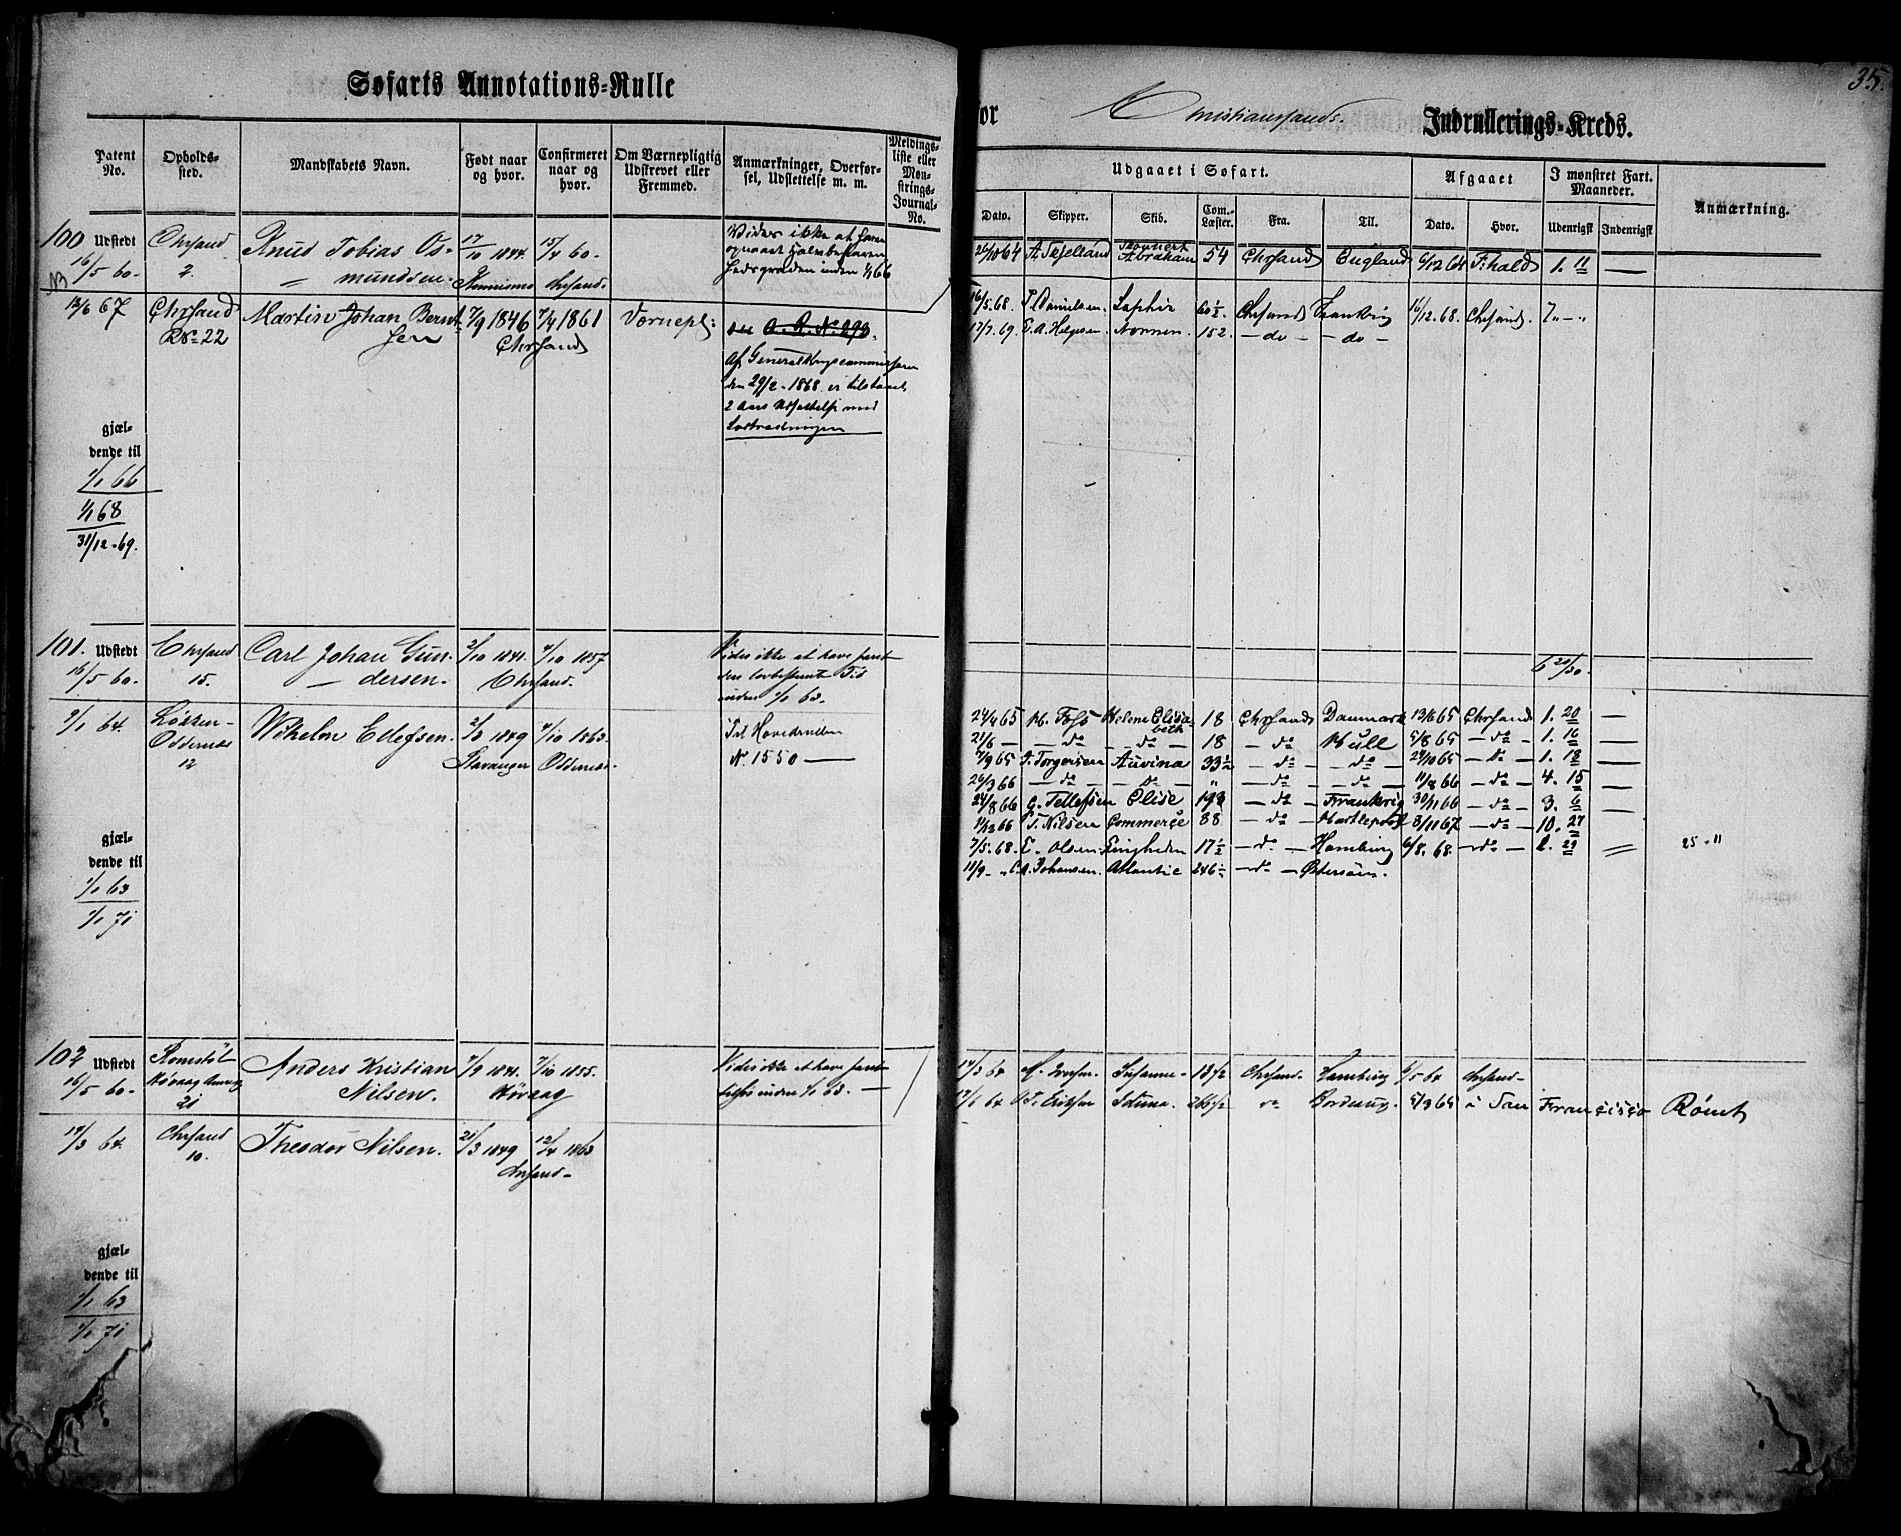 Søfarts Annotations-Rulle
for Christiansands. Indrullerings-Kreds.
35.
Patent No.
Opholds-sted.
Mandskabets Navn.
Født naar og hvor.
Confirmeret naar og hvor.
Om Værnepligtig Udskrevet eller Fremmed.
Anmærkninger, Overførsel, Udslettelse m. m.
Meldings-liste eller Mønstrings-Journal-No.
Udgaaet i Søfart.
Afgaaet
I mønstret Fart. Maaneder.
Anmærkning.
Dato. Skipper. Skib. Com.-Læster. Fra. Til. Dato. Hvor. Udenrigsk Indenrigsk
100 Udstedt Chrsand Knud Tobias Os- 17/10 1844. 15/4 60.
16/5 60. 2. mundsen. Chrsand.
Vides ikke at have
inden 1/1 66
26/10 64 Skonnert Abraham 54 Chrsand England 6/12 64 F:hald 1. 11 —
13/6 67 Chrsand Martin Johan Bernt- 7/9 1846 7/4 1861 Værnepl:
No 22 sen Chrsand
A. R. No 290.
Af Generalkrigscommissæren
den 29/2 - 1868 er tilstaaet
2 Aars Udsættelse med
Lodtrækningen
16/5.68. T. Danielsen. Saphir 60½ Chrsand Frankrig 16/12.68. Chrsand. 7. - "
17/7. 69. T. A. Helgesen. Nornen. 152. - do - - do -
gjæl-
dende til
1/1 66
1/1 68
31/12 - 69.
101. Udstedt Chrsand Carl Johan Gun- 2/10 1841. 4/10 1857
16/5 60. 15. dersen. Chrsand.
Vides ikke at have faret
den lovbestemte Tid
inden 1/1 63.
6 20/30.
9/1 64. Løkken - Wilhelm Ellefsen. 2/3 1849 4/10 1863.
Oddernæs Stavanger Oddernæs.
12
Til Hovedrullen
N. 1550 —
24/4 65 M. Foss Helene Elisabeth 18 Chrsand Danmark 13/6 65 Chrsand 1. 20 —
21/6 — - do - do - 18 - do Hull 5/8 65 - do - 1. 16 —
7/9 65 T. Torgersen Auvina 33½ - do - - do - 24/10 65 - do - 1. 18 —
26/3 66 - do - - do - " - do - - do - 11/8 66 - do - 4. 15 —
24/8 66 G. Tellefsen Elise 193 - do - Frankrig 30/11 66 - do - 3. 6 —
11/12 66 T. Nilsen Commerce 38 - do - Hartlepool 8/11 67 - do - 10. 27
7/5. 68. E. Olsen. Enigheden 17½ - do - Hamburg 6/8. 68. - do - 2. 29 25 - 11
11/9 - " C. A. Johansen. Atlantic 246 - do - Østersøen.
gjæl-
dende til
1/1 63
1/1 71
102 Udstedt Anders Kristian 7/9 1841. 7/10 1855.
16/5 60. Høvaag Nilsen. Høvaag
21
Vides ikke at have faret
inden 1/1 63. —
14/3 64 Susanne - 13½ Chrsand. Hamburg 6/5 64 Chrsand -
17/6 64 T. Eriksen Iduna. 266½ do Bordeaux. 5/3 65 i San Francisco Rømt
14/3 64. Chrsand Theodor Nilsen. 21/3 1849 12/4 1863
10. Chrsand -
gjæl-
dende til
1/1 63
1/1 71